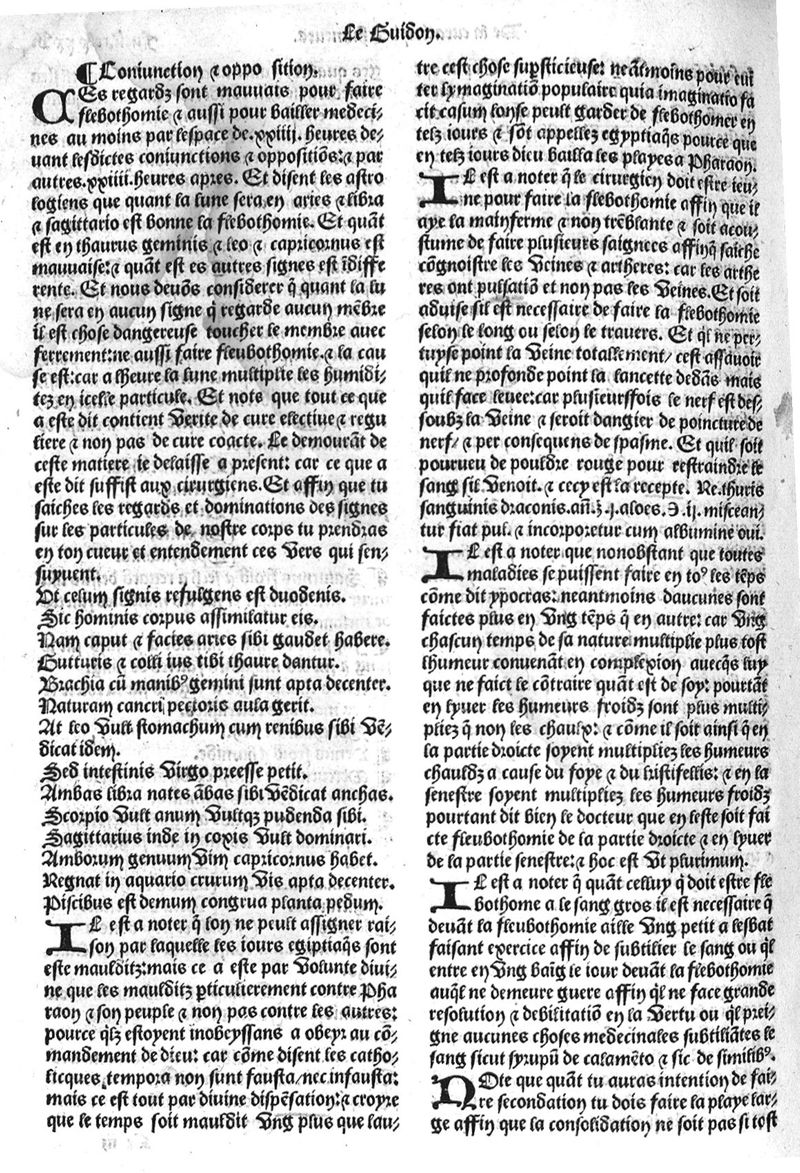 Le Guidon.
¶ Coniunction ⁊ oppo sition.
CEs regardz sont mauvais pour faire
flebothomie ⁊ aussi pour bailler medeci⸗
nes au moins par lespace de.xxiiij. heures de⸗
uant lesdictes coniunctions ⁊ oppositiõs:⁊ par
autres.xxiiii.heures apres. Et disent les astro
logiens que quant la lune sera en aries ⁊ libra
⁊ sagittario est bonne la flebothomie. Et quãt
est en thaurus geminis ⁊ leo ⁊ capricornus est
mauuaise:⁊ quãt est es autres signes est ĩdiffe
rente. Et nous deuõs considerer q̃ quant la lu
ne sera en aucun signe q̃ regarde aucun mẽbre
il est chose dangereuse toucher le membre auec
ferrement:ne aussi faire fleubothomie.⁊ la cau
se est:car a lheure la lune multiplie les humidi⸗
tez en icelle particule. Et note que tout ce que
a este dit contient verite de cure electiue ⁊ regu
liere ⁊ non pas de cure coacte. Le demourãt de
ceste matiere ie delaisse a present: car ce que a
este dit suffist aux cirurgiens.Et affin que tu
saiches les regards et dominations des signes
sur les particules de nostre corps tu prendras
en ton cueur et entendement ces vers qui sen⸗
suyuent.
Vt celum signis refulgens est duodenis.
Sic hominis corpus assimilatur eis.
Nam caput ⁊ facies aries sibi gaudet habere.
Gutturis ⁊ colli ius tibi thaure dantur.
Brachia cũ manibꝰ gemini sunt apta decenter.
Naturam cancri pectoris aula gerit.
At leo vult stomachum cum renibus sibi vẽ⸗
dicat idem.
Sed intestinis virgo preesse petit.
Ambas libra nates ãbas sibi vẽdicat anchas.
Scorpio vult anum vultqʒ pudenda sibi.
Sagittarius inde in coxis vult dominari.
Amborum genuum vim capricornus habet.
Regnat in aquario crurum vis apta decenter.
Piscibus est demum congrua planta pedum.
IL est a noter q̃ lon ne peult assigner rai⸗
son par laquelle les iours egiptiaq̃s sont
este maulditz:mais ce a este par volunte diui⸗
ne que les maulditz ꝑticulierement contre Pha
raon ⁊ son peuple ⁊ non pas contre les autres:
pource q̃lz estoyent inobeyssans a obeyr au cõ⸗
mandement de dieu: car cõme disent les catho⸗
licques,tempora non sunt fausta/nec infausta:
mais ce est tout par diuine dispẽsation:⁊ croyre
que le temps soit mauldit vng plus que lau⸗
tre cest chose suꝑsticieuse: neãtmoins pour eui
ter lymaginatiõ populaire quia imaginatio fa
cit casum lonse peult garder de flebothomer en
telz iours ⁊ sõt appellez egyptiaq̃s pource que
en telz iours dieu bailla les playes a Pharaon.
IL est a noter q̃ le cirurgien doit estre ieu⸗
ne pour faire la flebothomie affin que il
aye la mainferme ⁊ nõn trẽblante ⁊ soit acou⸗
stume de faire plusieurs saignees affinq̃ saiche
cõgnoistre les veines ⁊ artheres: car les arthe
res ont pulsatiõ et non pas les veines.Et soit
aduise sil est necessaire de faire la flebothomie
selon le long ou selon le trauers. Et q̃l ne per⸗
tuyse point la veine totallement/ cest assauoir
quil ne profonde point la lancette dedãs mais
quil face leuee:car plusieursfois le nerf est des⸗
soubz la veine ⁊ seroit dangier de poincture de
nerf/ ⁊ per consequens de spasme. Et quil soit
pourueu de pouldre rouge pour restraindre le
sang sil venoit.⁊ cecy est la recepte. Re.thuris
sanguinis draconis.añ.ʒ.j.aloes.ʒ.ij. miscean⸗
tur fiat pul.⁊ incorporetur cum albumine oui.
IL est a noter que nonobstant que toutes
maladies se puissent faire en toꝰ les tẽps
cõme dit ypocras: neantmoins daucunes sont
faictes plus en vng tẽps q̃ en autre: car vng
chascun temps de sa nature multiplie plus tost
lhumeur conuenãt en complexion auecq̃s luy
que ne faict le cõtraire quãt est de soy: pourtãt
en lyuer les humeurs froidz sont plus multi⸗
pliez q̃ non les chaulx: ⁊ cõme il soit ainsi q̃ en
la partie droicte soyent multipliez les humeurs
chauldz a cause du foye ⁊ du kistifellis: ⁊ en la
senestre soyent multipliez les humeurs froidz
pourtant dit bien le docteur que en leste soit fai
cte flebothomie de la partie droicte ⁊ en lyuer
de la partie senestre:⁊ hoc est vt plurimum.
IL est a noter q̃ quãt celluy q̃ doit estre fle
bothome a le sang gros il est necessaire q̃
deuãt la fleubothomie aille vng petit a lesbat
faisant exercice affin de subtilier le sang ou q̃l
entre en vng baig le iour deuãt la flebothomie
auq̃l ne demeure guere affin q̃l ne face grande
resolution ⁊ debilitatiõ en la vertu ou q̃l prei⸗
gne aucunes choses medecinales subtiliãtes le
sang sicut syrupũ de calamẽto ⁊ sic de similibꝰ.
NOte que quãt tu auras intention de fai⸗
re secondation tu dois faire la playe lar⸗
ge affin que la consolidation ne soit pas si tost